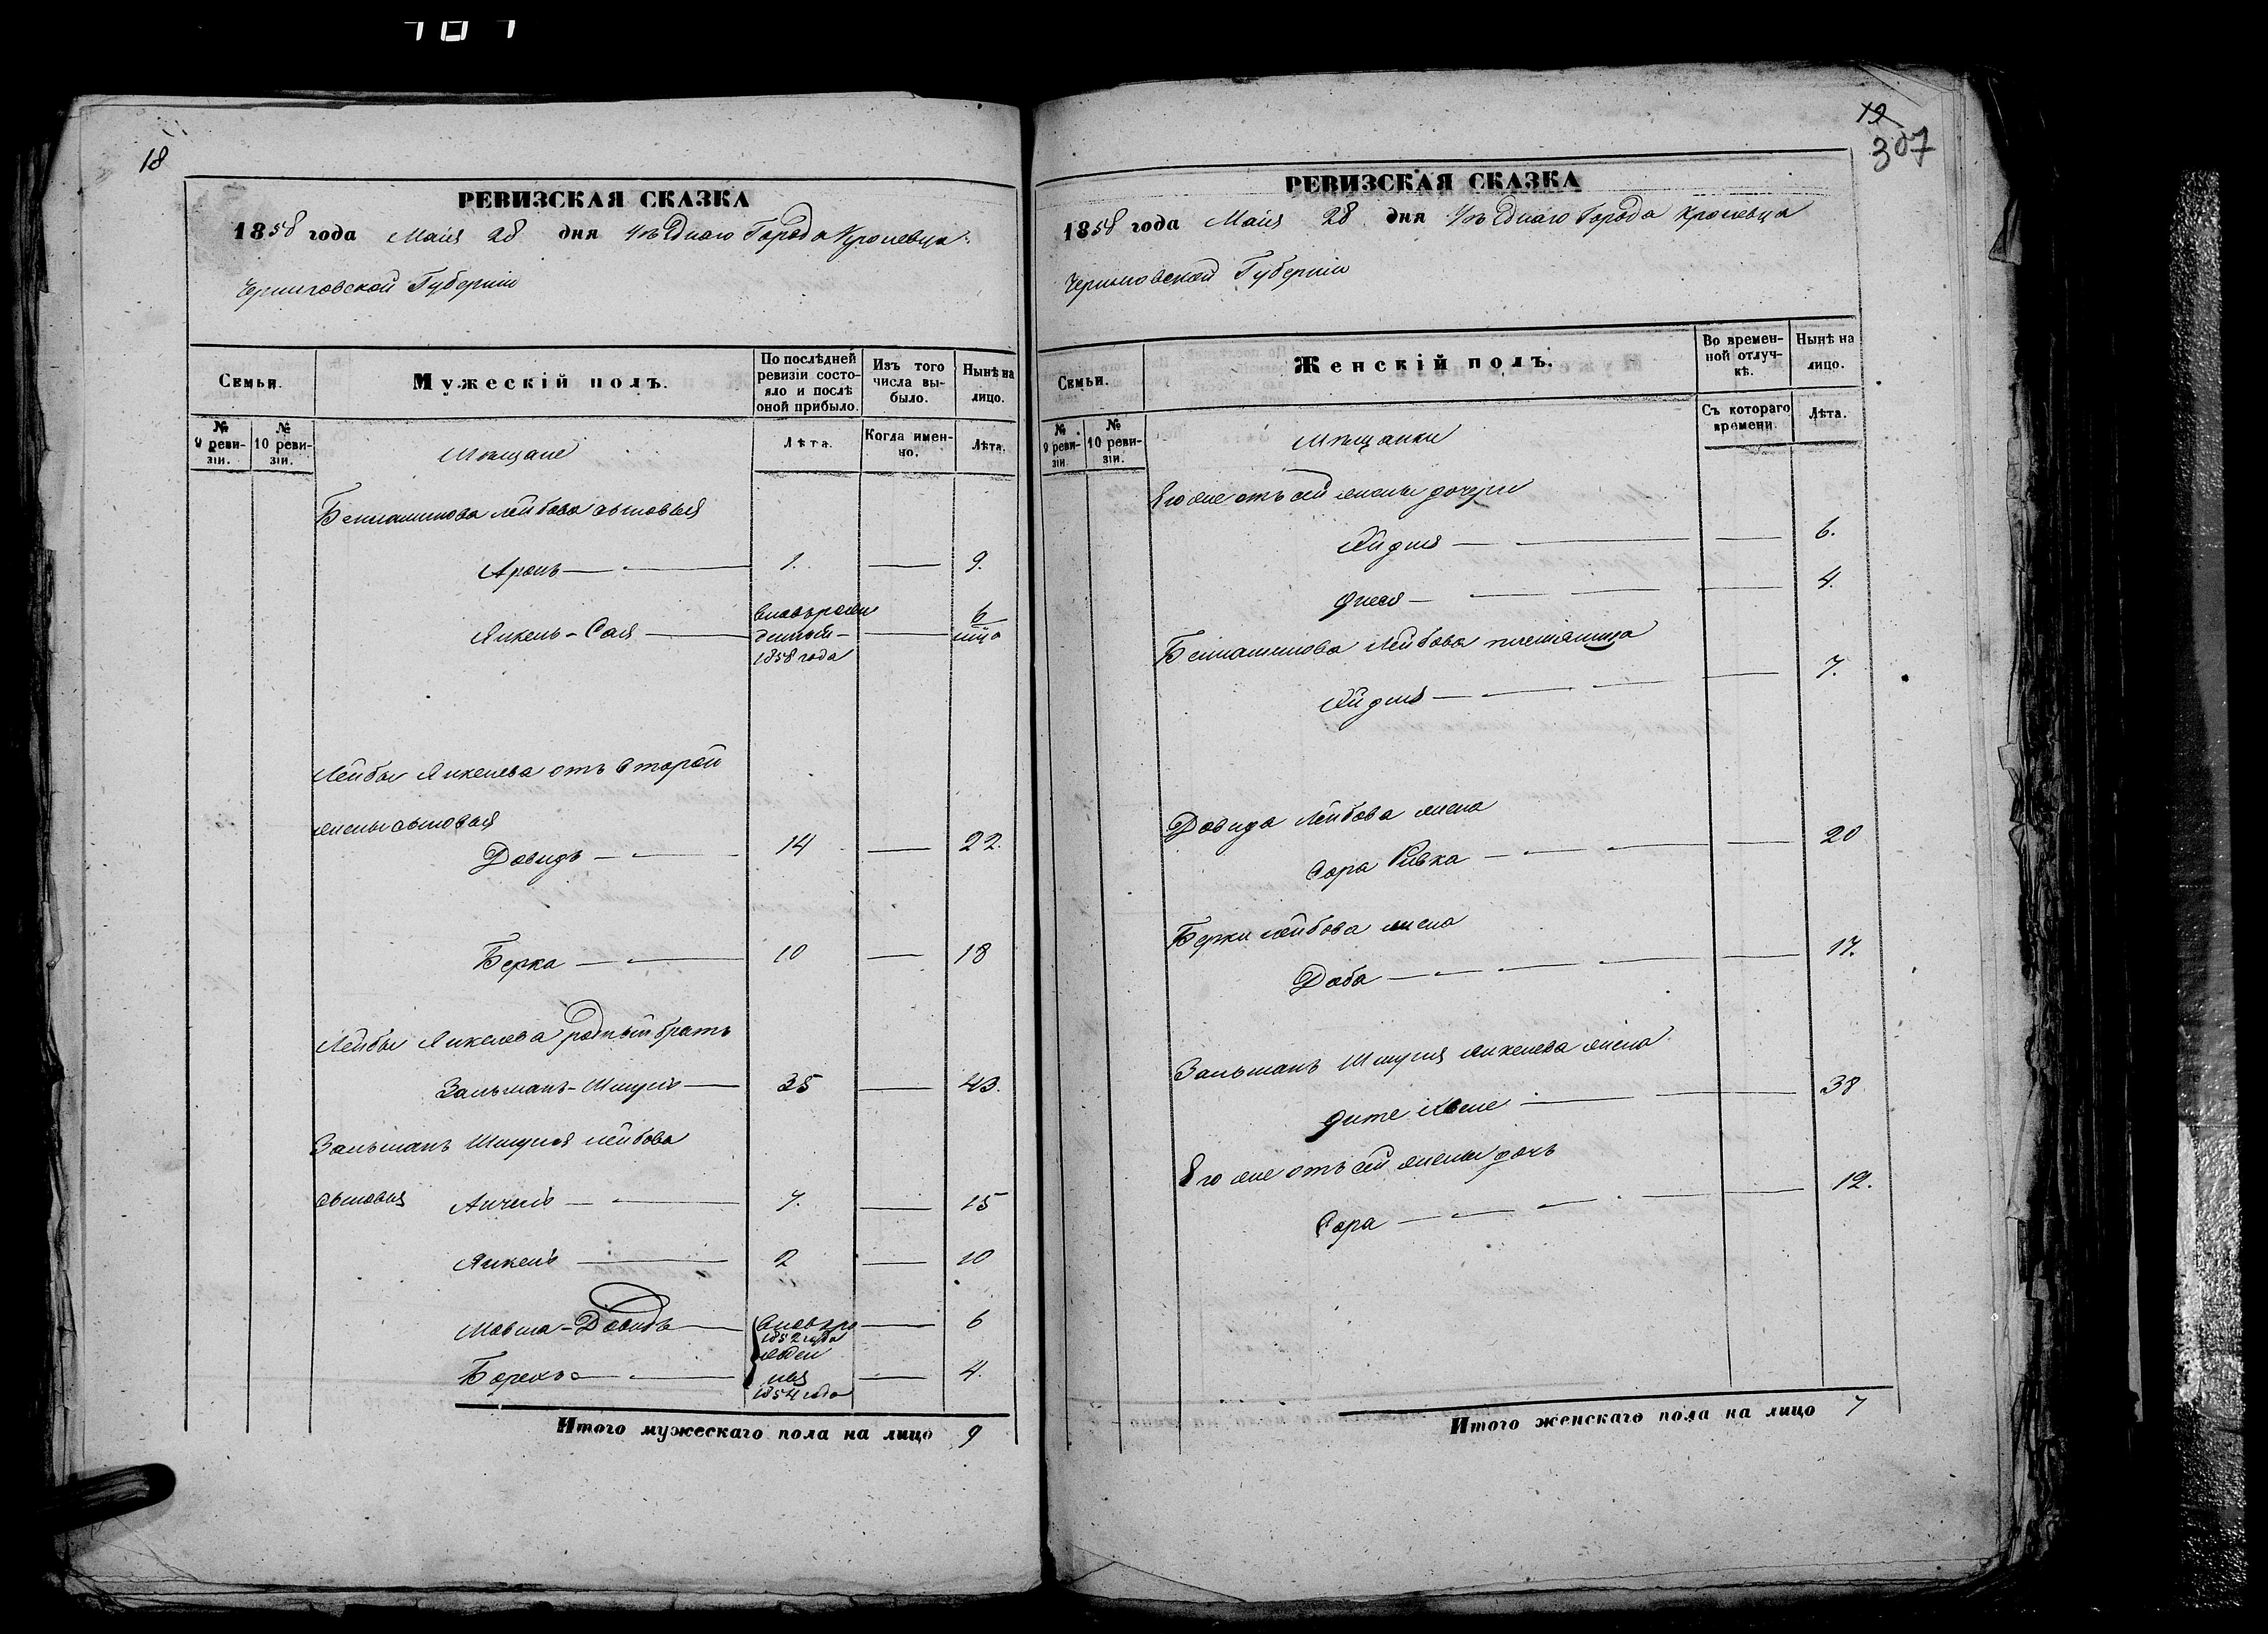 18
РЕВИЗСКАЯ СКАЗКА
1858 года Маія 28 дня Уѣзднаго Города Кролевца
Черниговской Губерніи
Семьи.
Мужескій полъ.
По послѣдней ревизіи состояло и послѣ оной прибыло.
Изъ того числа выбыло.
Нынѣ на лицо.
№ 9 ревизіи.
№ 10 ревизіи.
Мѣщане
Лѣта.
Когда именно.
Лѣта.
Беніаминова Лейбова сыновья
Аронъ — 1. — 9.
Янкель-Сая — Новорожденный 1858 года — 6
Лейбы Янкелева отъ второй
жены сыновья
Довидъ — 14 — 22.
Берка — 10 — 18
Лейбы Янкелева родный братъ
Зальманъ-Шмуль — 35 — 43.
Зальманъ Шмуля Лейбова
сыновья Анчель — 7. — 15
Янкель — 2 — 10
Мовша-Довидъ — 1852 года — 6
Борохъ — 1854 года — 4.
Итого мужескаго пола на лицо 9
19
307
РЕВИЗСКАЯ СКАЗКА
1858 года Маія 28 дня Уѣзднаго Города Кролевца
Черниговской Губерніи
Семьи.
Женскій полъ.
Во временной отлучкѣ.
Нынѣ на лицо.
№ 9 ревизіи.
№ 10 ревизіи.
Мѣщанки
Съ котораго времени.
Лѣта.
Его же отъ сей жены дочери
6.
4.
Беніаминова Лейбова племянница
7.
Довида Лейбова жена
Сора Ривка — 20
Берки Лейбова жена
Доба — 17.
Зальманъ Шмуля Янкелева жена
38
Его же отъ сей жены дочь
Сора — 12.
Итого женскаго пола на лицо 7